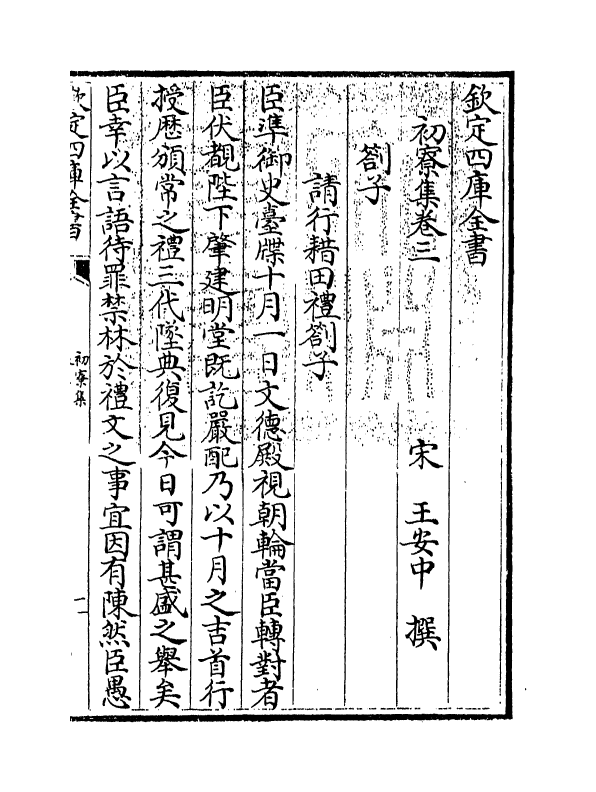 欽定四庫全書
初寮集卷三
宋 王安中 撰
劄子
請行耤田禮劄子
臣準御史臺牒十月一日文德殿視朝輪當臣轉對者
臣伏覩陛下肇建明堂既訖嚴配乃以十月之吉首行
授歴頒常之禮三代墜典復見今日可謂甚盛之舉矣
臣幸以言語待罪禁林於禮文之事宜因有陳然臣愚
欽定四庫全書
初寮集
一